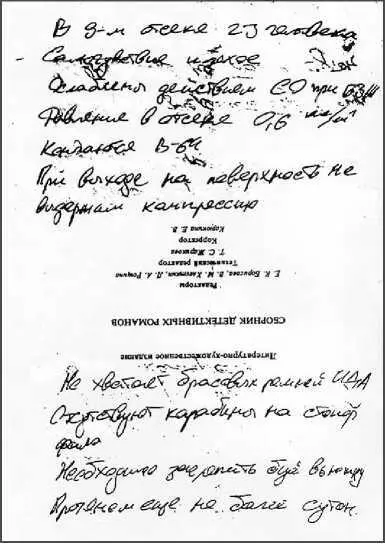 В 9-м отсеке 23 человека
Самочувствие плохое
Ослаблены действием СО при БЗЖ
Давление в отсеке 0,6 кг/см²
Кончаются В-64
При выходе на поверхность не
выдержим компрессию
Корректор
Т. С. Жарикова
Технический редактор
Е. К. Борисова, В. М.
Редакторы
СБОРНИК ДЕТЕКТИВНЫХ РОМАНОВ
Литературно-художественное издание
Не хватает брасовых ремней ИДА
Отсутствуют карабины на стопор
фала
Необходимо закрепить буй
Протянем еще не более суток.